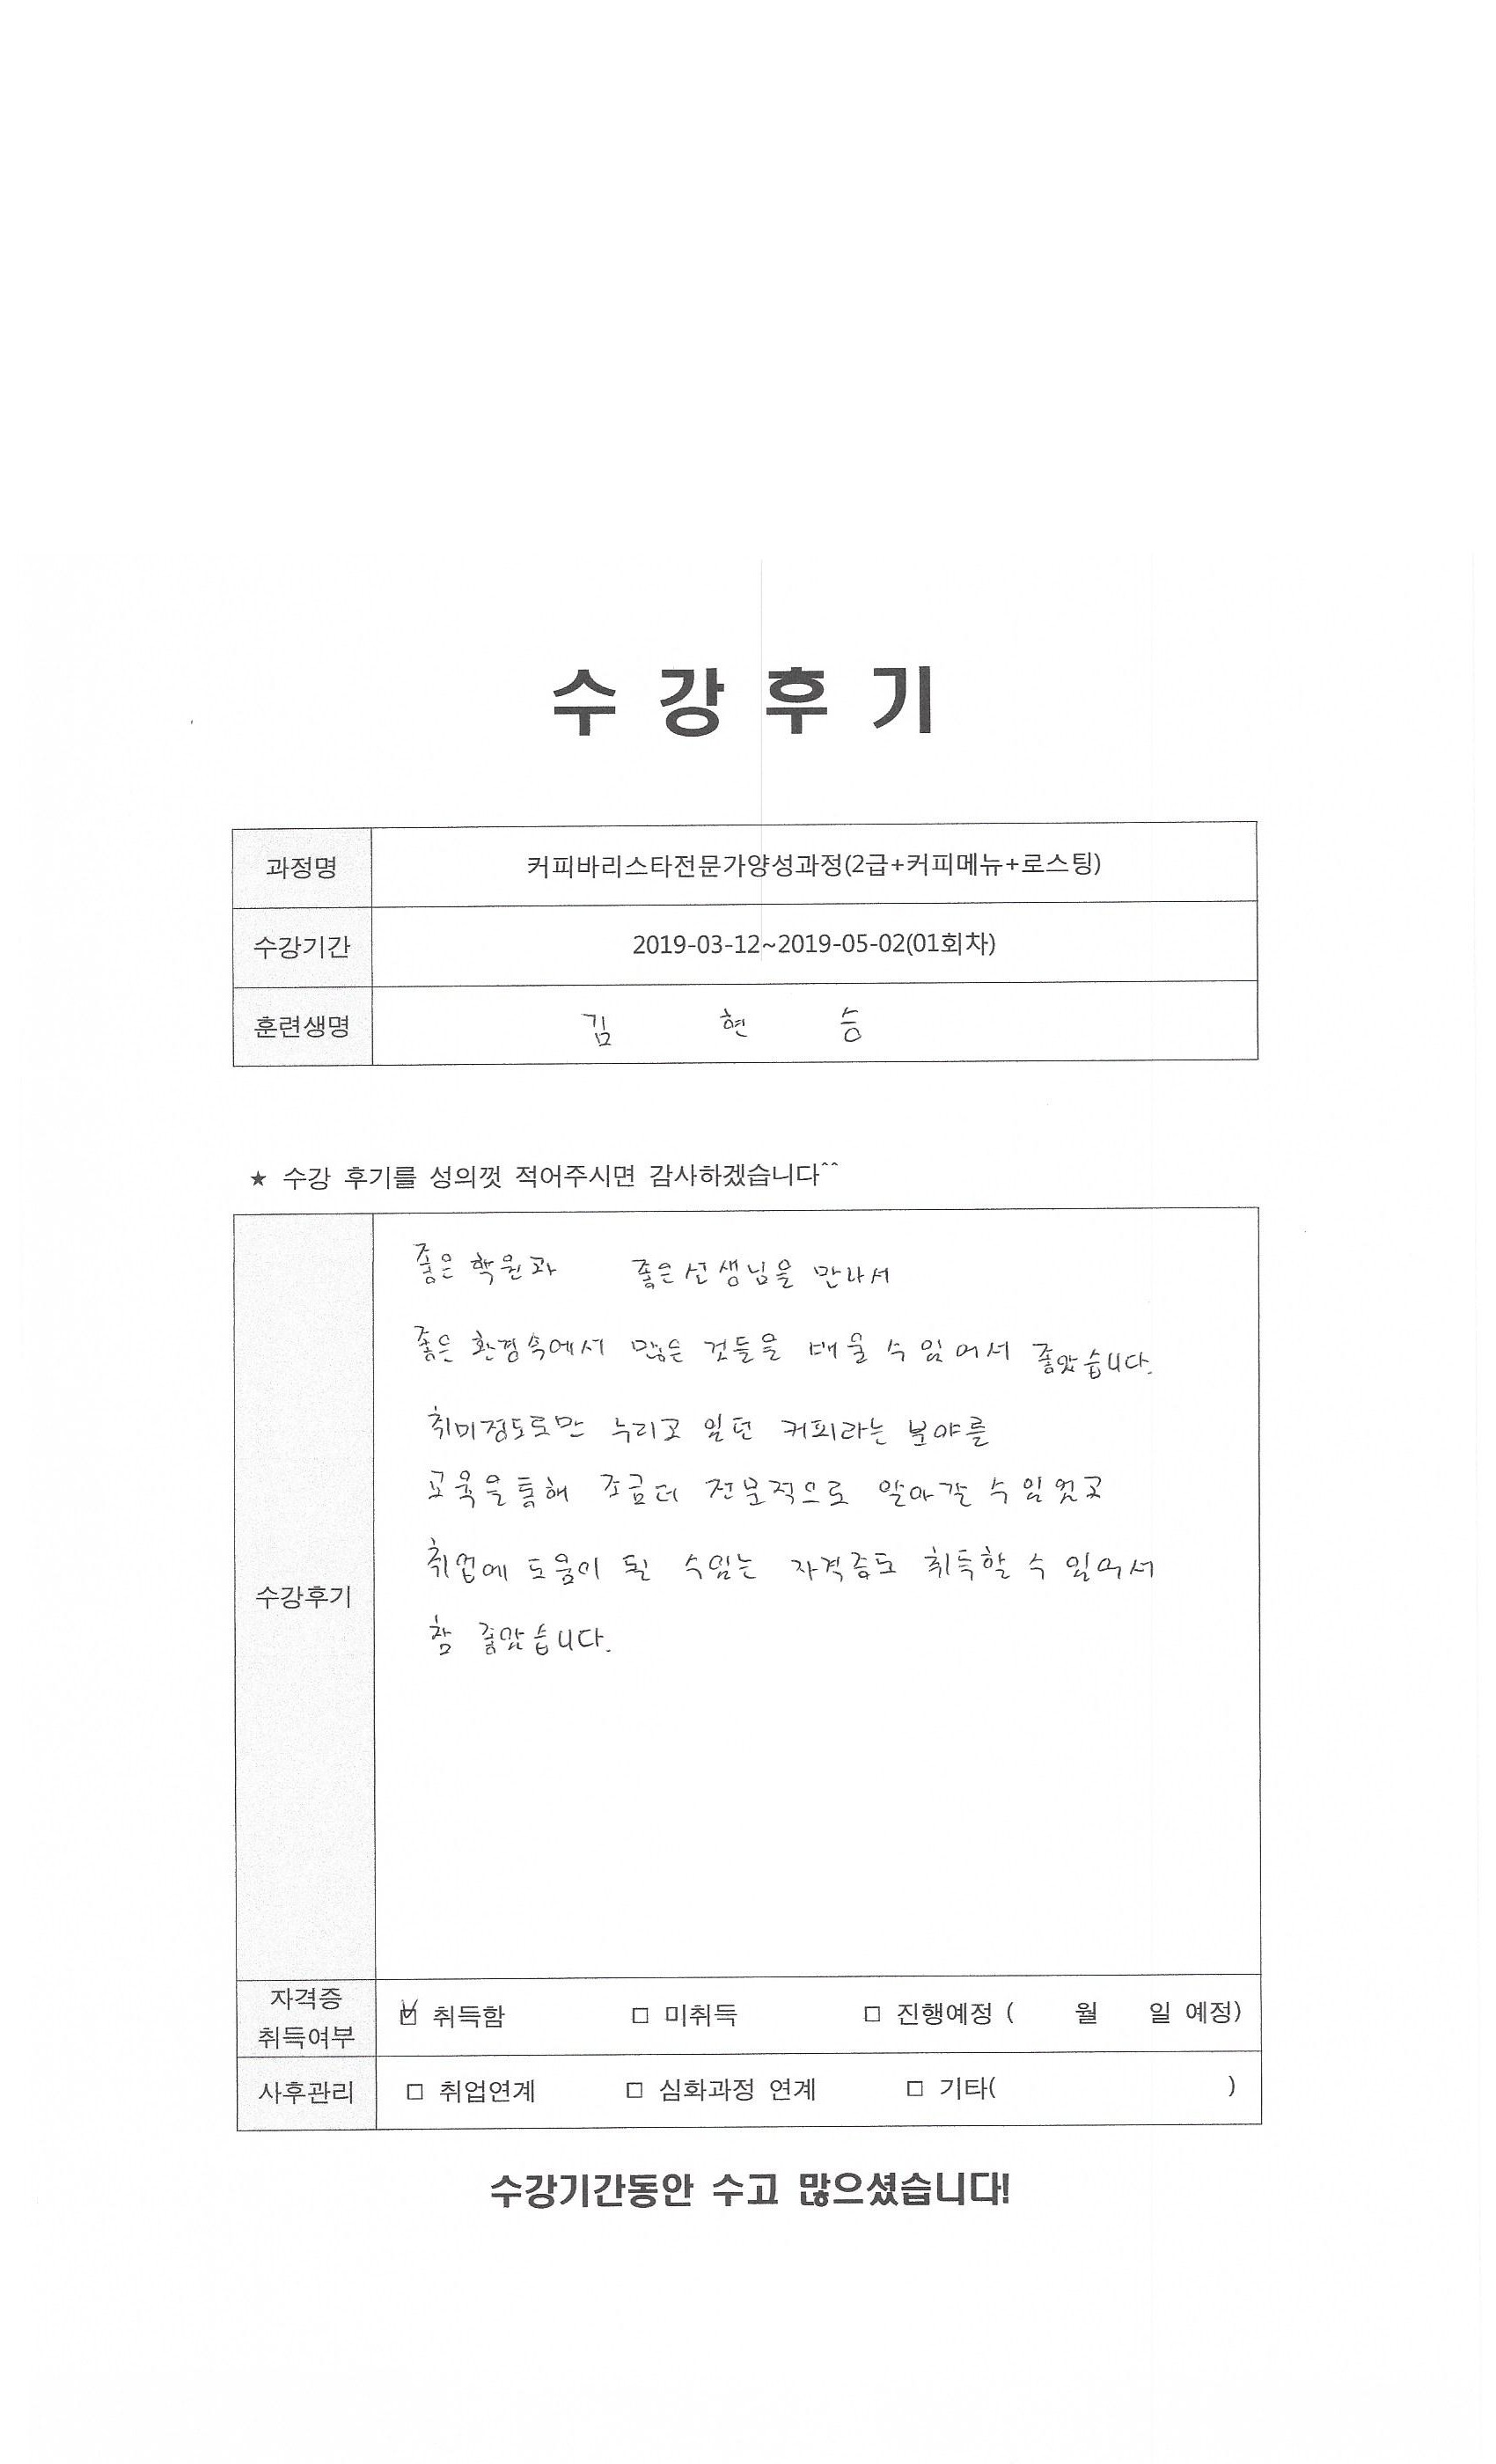 수 강 후 기
과정명 커피바리스타전문가양성과정(2급+커피메뉴+로스팅)
수강기간 2019-03-12~2019-05-02(01회차)
훈련생명 김 현 승
★ 수강 후기를 성의껏 적어주시면 감사하겠습니다^^
좋은 학원과 좋은선생님을 만나서
좋은 환경속에서 많은 것들을 배울 수 있어서 좋았습니다.
취미정도로만 누리고 있던 커피라는 분야를
교육을통해 조금더 전문적으로 알아갈 수 있었고
수강후기
취업에 도움이 될 수있는 자격증도 취득할 수 있어서
참 좋았습니다.
자격증
취득여부
☑ 취득함 □ 미취득 □ 진행예정 ( 월 일 예정)
사후관리 □ 취업연계 □ 심화과정 연계 □ 기타( )
수강기간동안 수고 많으셨습니다!